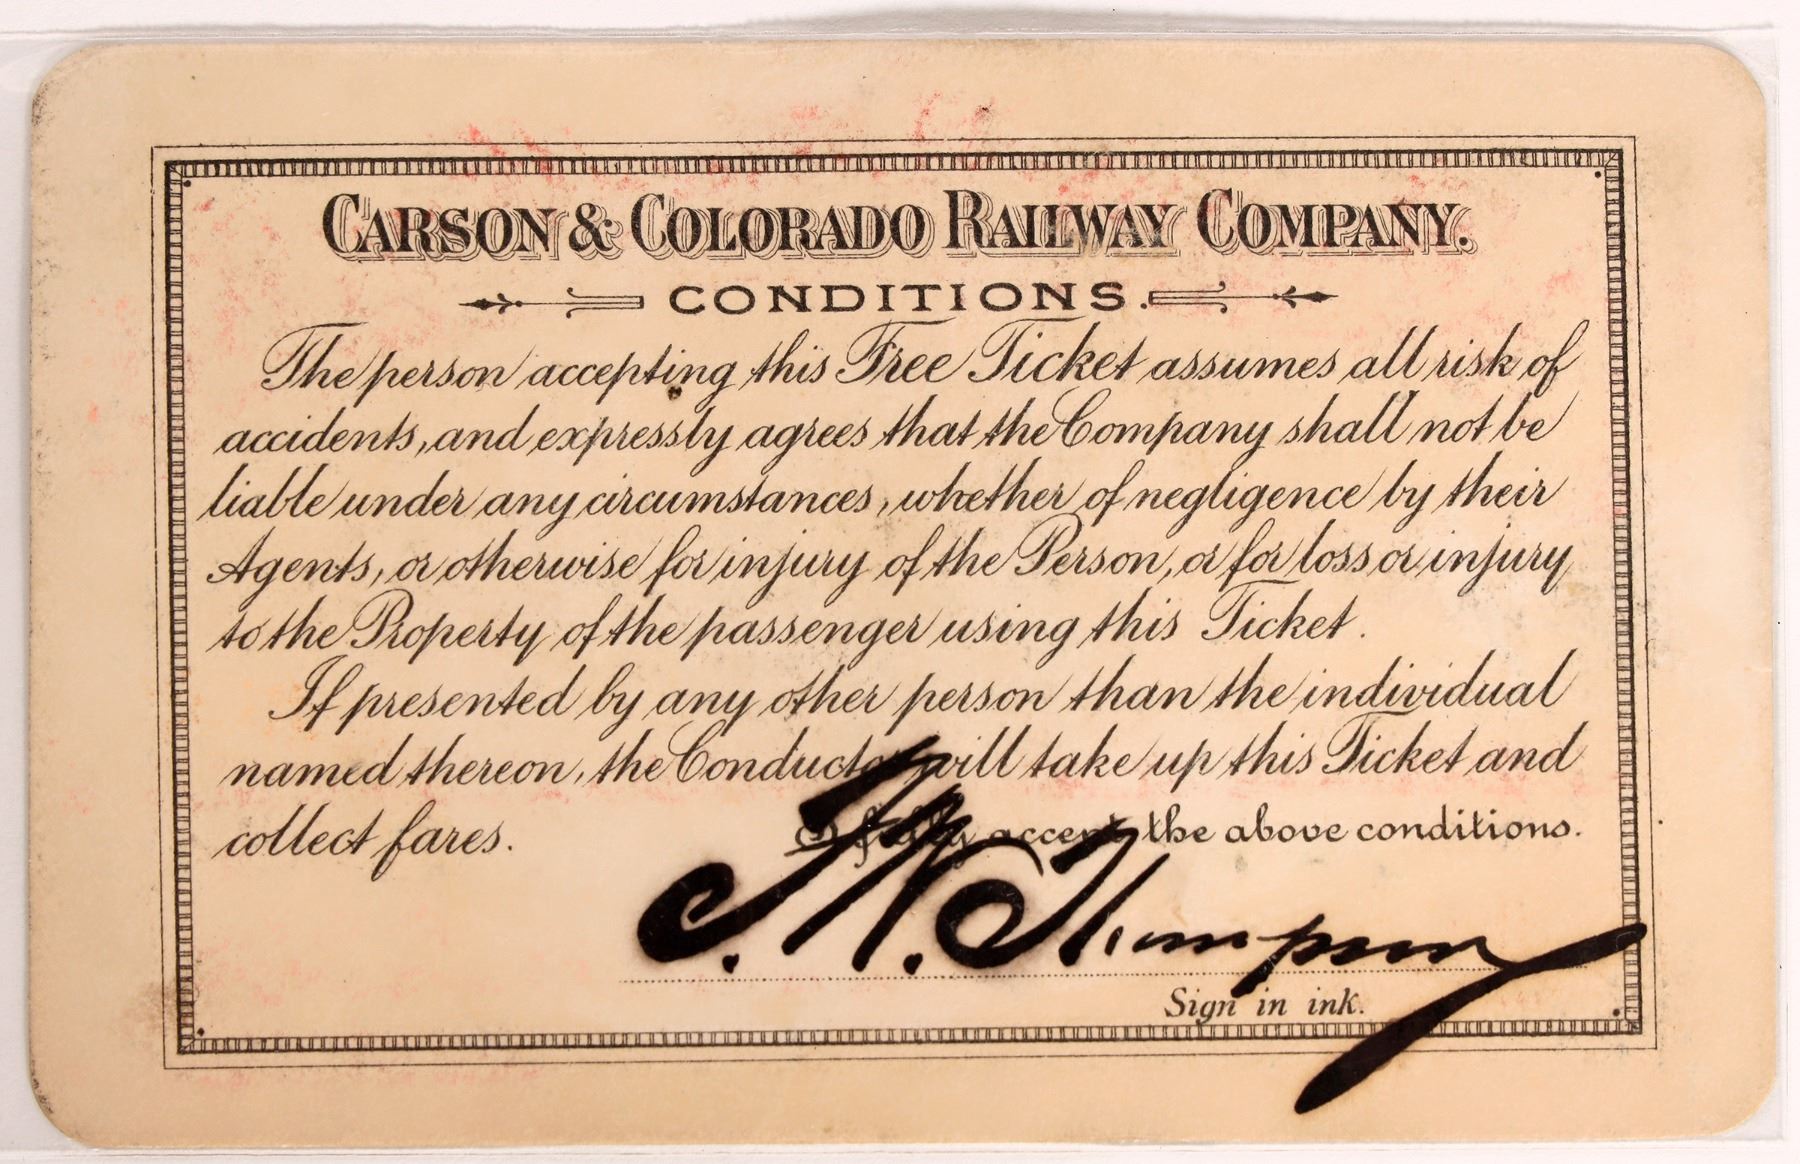 CARSON & COLORADO RAILWAY COMPANY.
CONDITIONS.
The person accepting this Free Ticket assumes all risk of
accidents, and expressly agrees that the Company shall not be
liable under any circumstances, whether of negligence by their
Agents, or otherwise for injury of the Person, or for loss or injury
to the Property of the passenger using this Ticket.
If presented by any other person than the individual
named thereon, the Conductor will take up this Ticket and
collect fares.
I fully accept the above conditions.
J. W. Thompson
Sign in ink.